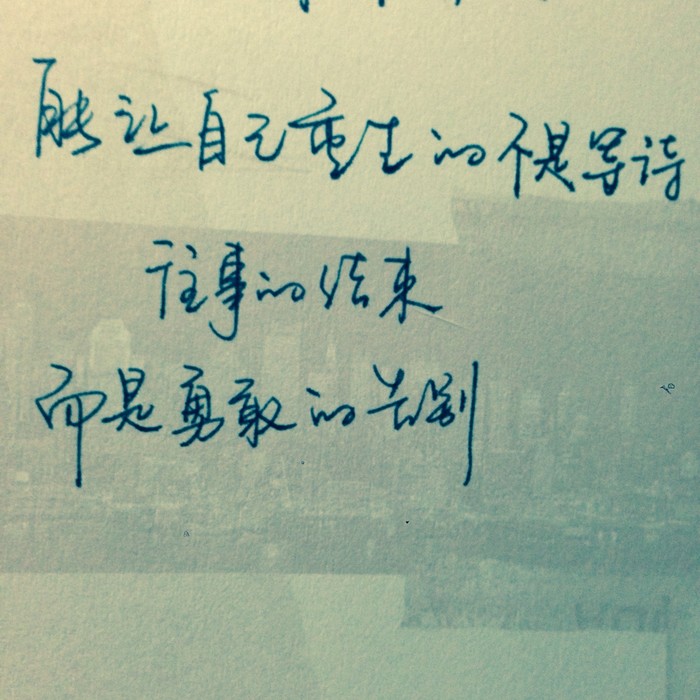 能让自己重生的不是等待
往事的结束
而是勇敢的告别